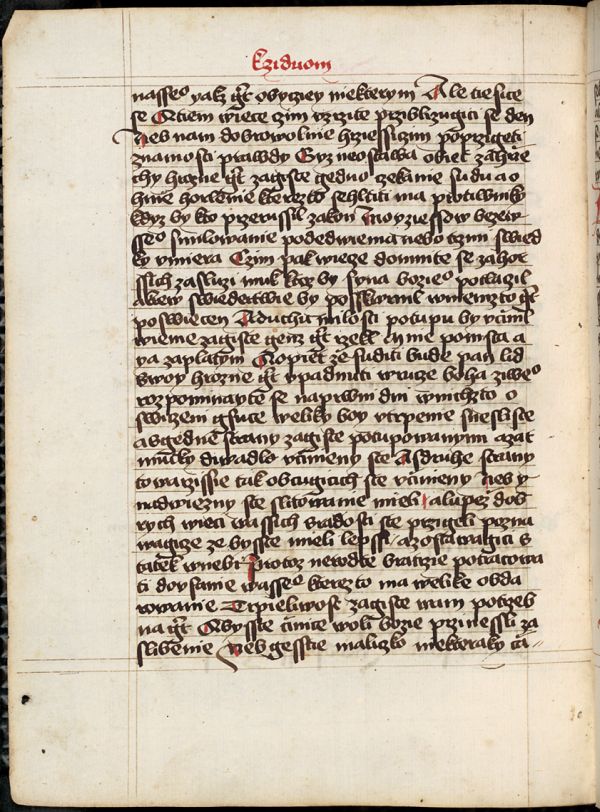 Kziduom
nasseº yakz gt̄ obyczey niekterym Ale tiesſce
se Atiem wiece czim vzrzite przibliziugici se den
Neb nam dobrowolnie hrziessiczim po przigeti
znamosti prawdy Gyz neostawa obiet zahrze
chy hrozne gt̄ zagiste gedno czekanie sudu a o
hnie horlenie kterezto sehltiti ma protiwniky
kdyz by kto przerussil zakon Moyziessow beze w
sseº smilowanie pod dwiema nebo trzmi swied
ky vmiera Czim pak wiece domnite se zahor
ssich zasluzi muk ktoz by syna bozieº potlaczil
Akrew swiedectwie by posskwrnil wnieznzto gt̄
poswiecen Aduchu milosti potupu by vczinil
wieme zagiste genz gt̄ rzekl Mnie pomsta a
ya zaplatym A opiet ze suditi bude pan lid
swoy hrozne gt̄ vpadnuti wrucze boha ziweº
rozpominayte se na prwni dni wnichzto o
swiczeni gsuce weliky boy vtrpenie sneslisſte
a zgedne strany zagiste potupowanym a zar
mutky diwadlo vczinieny ste Asdruhe strany
towarzissie tak obcugicich ste vczinieny Neb y
nad wiezny ste slitowanie mieli a lupez dob
rych wieci wassich s radosti ste przigeli pozna
wagicze ze bysste mieli lepssi a zostawagici s
tatek w nebi Protoz nerodte bratrzie potracowa
ti dovfanie wasseº kterezto ma welike obda
rowanie Trpieliwost zagiste wam potrzeb
na gt̄ Abysste cziniece woli bozie przinessli za
slibenie Neb gesstie maliczko niekteraky cza-